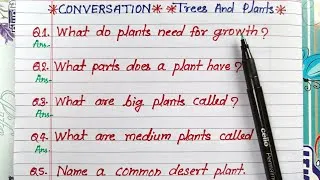 *CONVERSATION* *Trees And Plants
Q.1. What do plants need for growth?
Ans.
Q.2. What parts does a plant have?
Ans.
Q.3. What are big plants called?
Ans.
Q.4. What are medium plants called
Ans.
Q.5. Name a common desert plant.